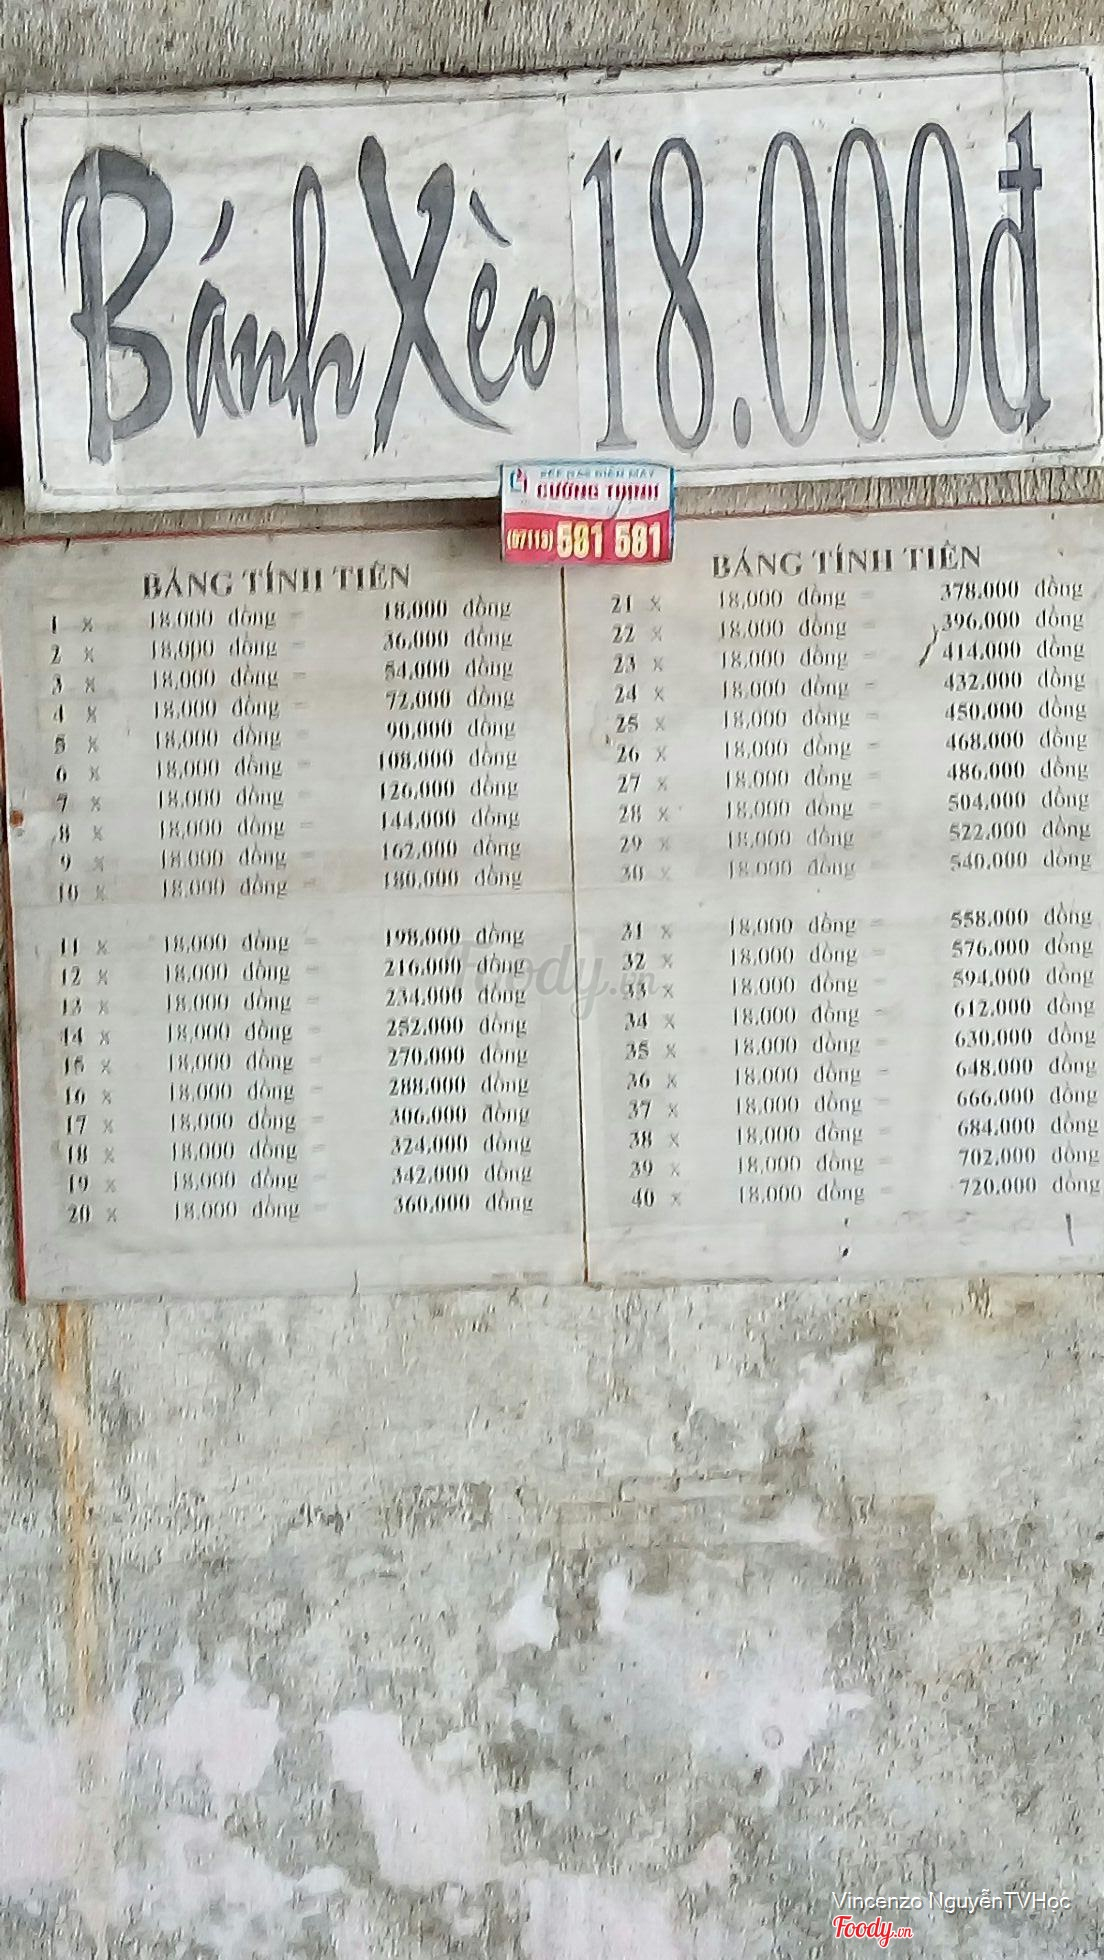 Bánh Xèo 18.000đ
CƯỜNG THỊNH
(07113) 581 581
BẢNG TÍNH TIỀN
1 x 18.000 đồng = 18.000 đồng
2 x 18.000 đồng = 36.000 đồng
3 x 18.000 đồng = 54.000 đồng
4 x 18.000 đồng = 72.000 đồng
5 x 18.000 đồng = 90.000 đồng
6 x 18.000 đồng = 108.000 đồng
7 x 18.000 đồng = 126.000 đồng
8 x 18.000 đồng = 144.000 đồng
9 x 18.000 đồng = 162.000 đồng
10 x 18.000 đồng = 180.000 đồng
11 x 18.000 đồng = 198.000 đồng
12 x 18.000 đồng = 216.000 đồng
13 x 18.000 đồng = 234.000 đồng
14 x 18.000 đồng = 252.000 đồng
15 x 18.000 đồng = 270.000 đồng
16 x 18.000 đồng = 288.000 đồng
17 x 18.000 đồng = 306.000 đồng
18 x 18.000 đồng = 324.000 đồng
19 x 18.000 đồng = 342.000 đồng
20 x 18.000 đồng = 360.000 đồng
BẢNG TÍNH TIỀN
21 x 18.000 đồng = 378.000 đồng
22 x 18.000 đồng = 396.000 đồng
23 x 18.000 đồng = 414.000 đồng
24 x 18.000 đồng = 432.000 đồng
25 x 18.000 đồng = 450.000 đồng
26 x 18.000 đồng = 468.000 đồng
27 x 18.000 đồng = 486.000 đồng
28 x 18.000 đồng = 504.000 đồng
29 x 18.000 đồng = 522.000 đồng
30 x 18.000 đồng = 540.000 đồng
31 x 18.000 đồng = 558.000 đồng
32 x 18.000 đồng = 576.000 đồng
33 x 18.000 đồng = 594.000 đồng
34 x 18.000 đồng = 612.000 đồng
35 x 18.000 đồng = 630.000 đồng
36 x 18.000 đồng = 648.000 đồng
37 x 18.000 đồng = 666.000 đồng
38 x 18.000 đồng = 684.000 đồng
39 x 18.000 đồng = 702.000 đồng
40 x 18.000 đồng = 720.000 đồng
Foody.vn
Vincenzo NguyễnTVHọc
Foody.vn